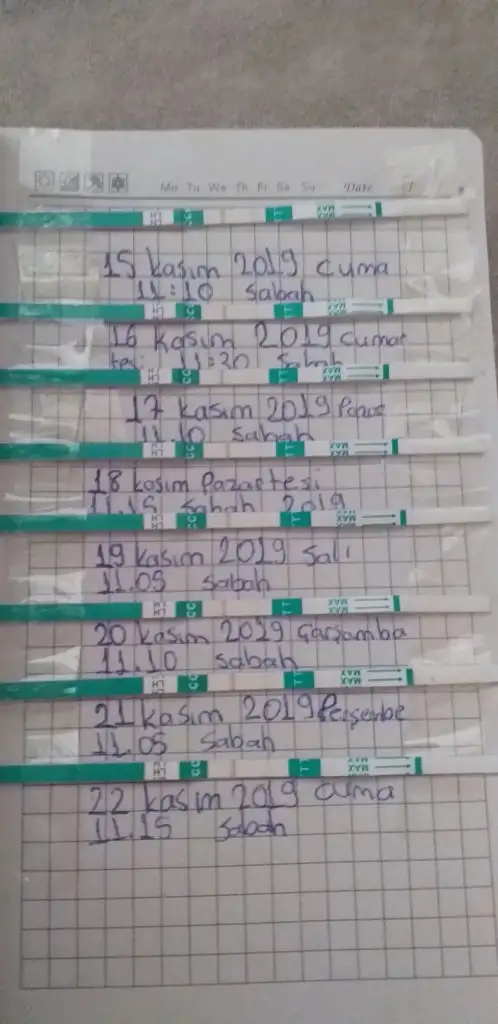 Mo Tu We Th Fr Sa Su Date
LH CC TT MAX
15 kasım 2019 cuma
11:10 sabah
LH CC TT MAX
16 kasım 2019 cumar
tesi 11:20 sabah
LH CC TT MAX
17 kasım 2019 Pazar
11.10 sabah
LH CC TT MAX
18 kasım Pazartesi
11.15 sabah 2019
LH CC TT MAX
19 kasım 2019 salı
11.05 sabah
LH CC TT MAX
20 kasım 2019 Çarşamba
11.10 sabah
LH CC TT MAX
21 kasım 2019 Perşembe
11.05 sabah
LH CC TT MAX
22 kasım 2019 cuma
11.15 sabah